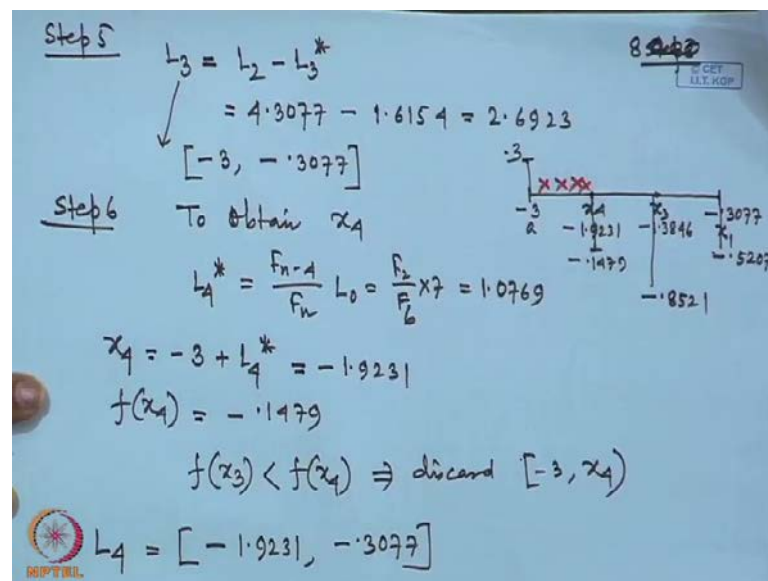 Step 5
L3 = L2 - L3*
= 4.3077 - 1.6154 = 2.6923
[-3, -.3077]
© CET
I.I.T. KGP
.3
x x x x
-3 x4 x3 -.3077
a -1.9231 -1.3846 x1
-.1479 -.5207
-.8521
Step 6 To obtain x4
L4* = Fn-4/Fn L0 = F2/F6 x7 = 1.0769
x4 = -3 + L4* = -1.9231
f(x4) = -.1479
f(x3) < f(x4) ⇒ discard [-3, x4)
L4 = [-1.9231, -.3077]
NPTEL